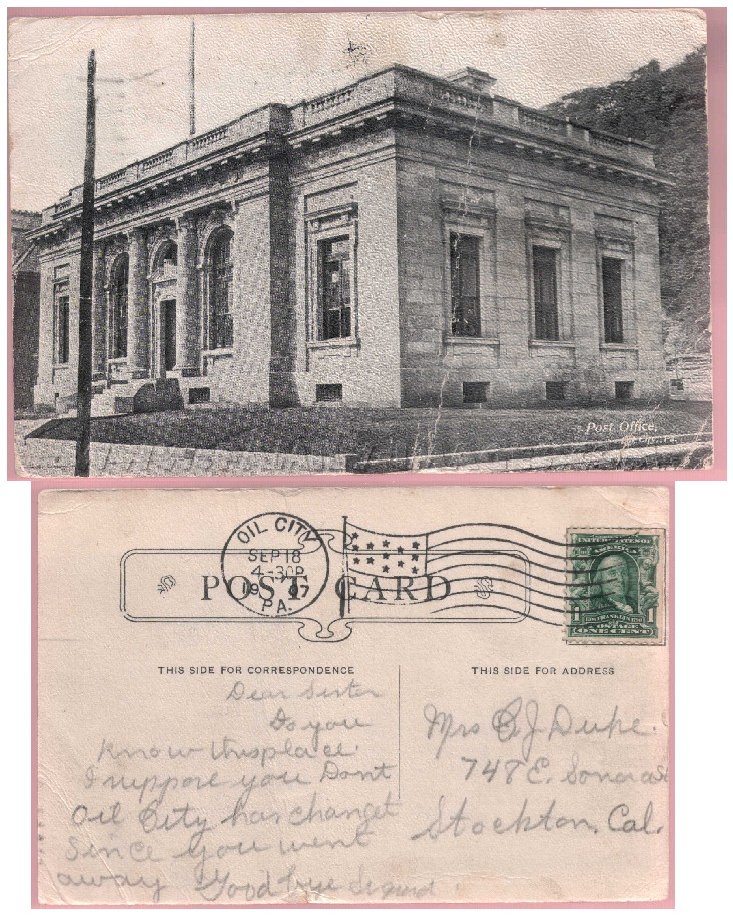 Post Office,
OIL CITY
SEP 18
4-30P
1907
PA.
POST CARD
UNITED STATES OF
AMERICA
1 1
POSTAGE
ONE CENT
THIS SIDE FOR CORRESPONDENCE
THIS SIDE FOR ADDRESS
Dear Sister
Do you
Know this place
I suppose you Dont
Oil City has changet
Since you went
away Good bye
Mrs J Duke.
747 E. Sonora St
Stockton, Cal.